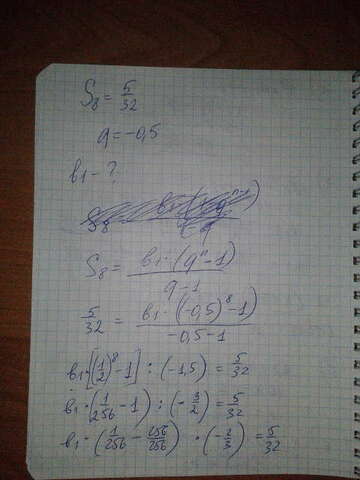 S₈ = 5/32
q = -0,5
в₁ - ?
S₈ = в₁·(qⁿ-1)/q-1
5/32 = в₁·((-0,5)⁸-1)/-0,5-1
в₁·[(1/2)⁸-1] : (-1,5) = 5/32
в₁·(1/256 - 1) : (-3/2) = 5/32
в₁·(1/256 - 256/256) · (-2/3) = 5/32